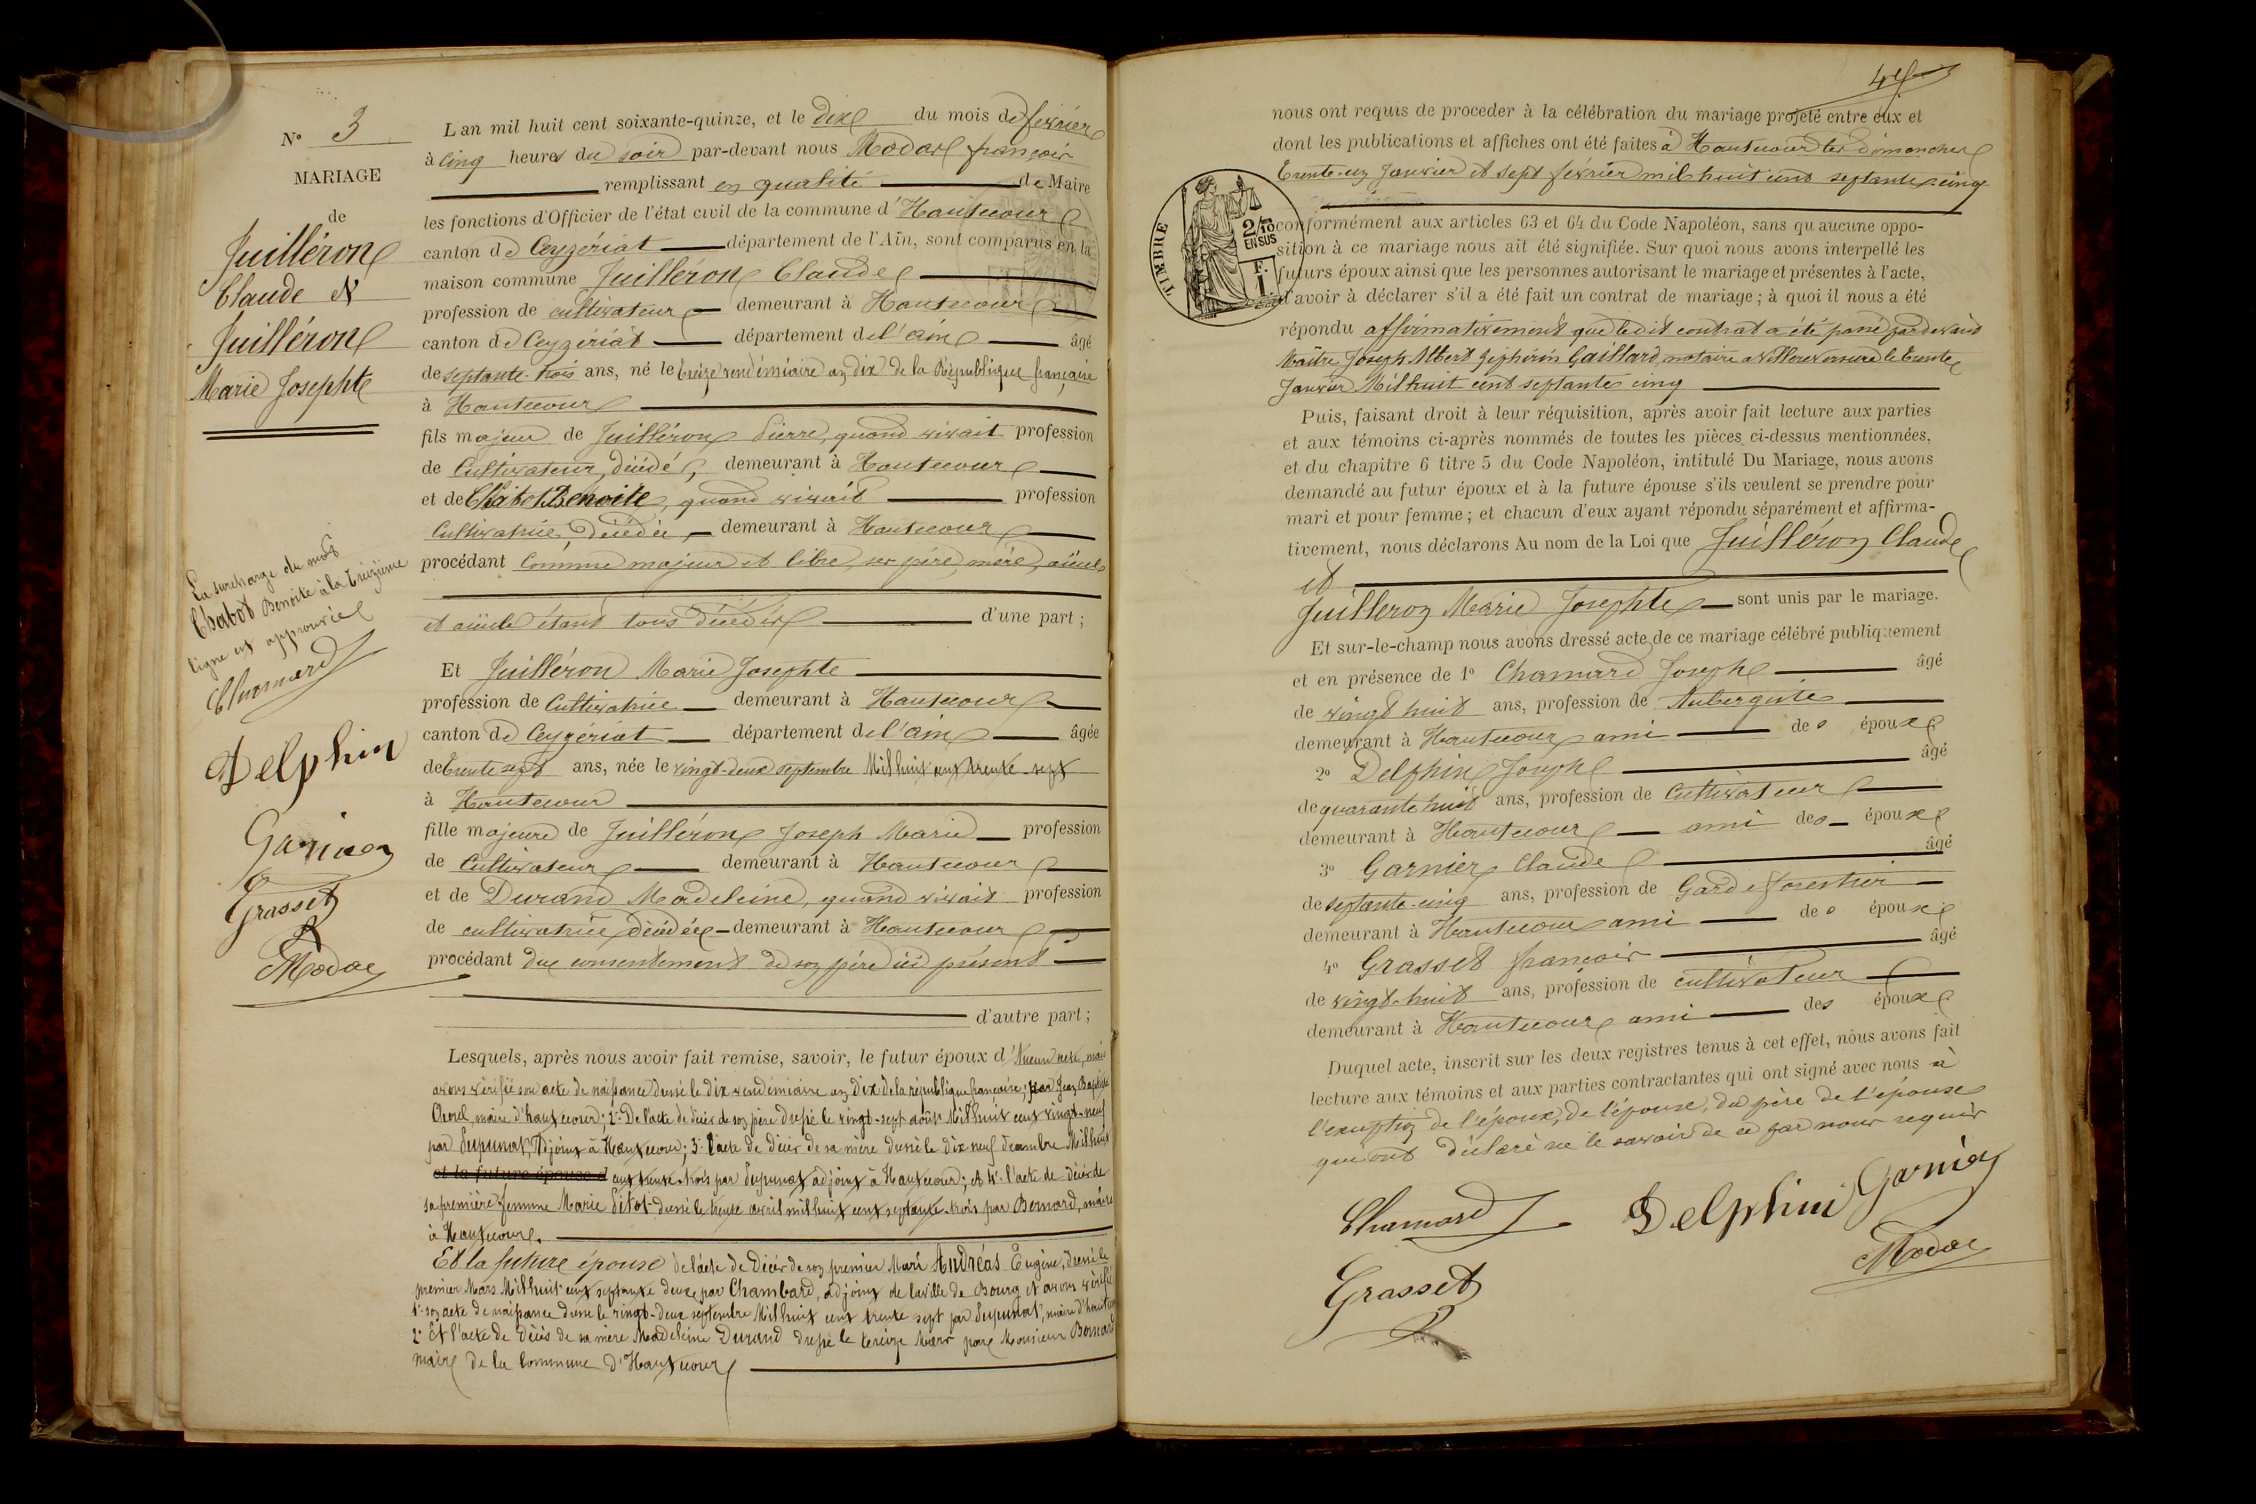 N° 3
MARIAGE
de
Juilléron
Claude et
Juilléron
Marie Josephte
La surcharge du mot
Chabot Benoite à la treizième
ligne est approuvée
Chamard
Delphin
Garnier
Grasset
Modas
L'an mil huit cent soixante-quinze, et le dix du mois de février
à cinq heures du soir par-devant nous Modas françois
remplissant en qualité de Maire
les fonctions d'Officier de l'état civil de la commune d'Hautecour
canton de Ceyzériat département de l'Ain, sont comparus en la
maison commune Juilléron Claude
profession de cultivateur demeurant à Hautecour
canton de Ceyzériat département de l'ain âgé
de septante-trois ans, né le treize vendémiaire an dix de la République française
à Hautecour
fils majeur de Juilléron Pierre, quand vivait profession
de Cultivateur, décédé, demeurant à Hautecour
et de Chabot Benoite, quand vivait profession
Cultivatrice, décédée demeurant à Hautecour
procédant Comme majeur et libre, ses père, mère, aïeuls
et aïeule étant tous décédés d'une part ;
Et Juilléron Marie Josephte
profession de Cultivatrice demeurant à Hautecour
canton de Ceyzériat département de l'ain âgée
de trente sept ans, née le vingt-deux septembre Mil huit cent trente-sept
à Hautecour
fille majeure de Juilléron Joseph Marie profession
de Cultivateur demeurant à Hautecour
et de Durand Madeleine, quand vivait profession
de cultivatrice décédée demeurant à Hautecour
procédant du consentement de son père ici présent
d'autre part ;
Lesquels, après nous avoir fait remise, savoir, le futur époux d'Aucun acte, mais
avons vérifié son acte de naissance dressé le dix vendémiaire an dix de la république française, par Jean Baptiste
maire d'hautecour; 2° De l'acte de décès de son père dressé le vingt-sept août Mil huit cent vingt-neuf
par Supunat, Adjoint à Hautecour; 3° l'acte de décès de sa mère dressé le dix neuf décembre Mil huit
et la future épouse d cent trente-trois par Supunat adjoint à Hautecour; et 4° l'acte de décès de
sa première femme Marie Pitot dressé le trente avril mil huit cent septante-trois par Bernard, maire
à Hautecour.
Et la future épouse de l'acte de Décès de son premier Mari Andréas Eugène, dressé le
premier Mars Mil huit cent septante deux par Chambard, adjoint de la ville de Bourg et avons vérifié
1° son acte de naissance dressé le vingt-deux septembre Mil huit cent trente sept par Supunat, maire d'hautecour
2° Et l'acte de Décès de sa mère Madeleine Durand dressé le treize Mars par Monsieur Bernard
maire de la Commune d'Hautecour
4e
nous ont requis de proceder à la célébration du mariage projeté entre eux et
dont les publications et affiches ont été faites à Hautecour les dimanches
Trente-un Janvier et sept février mil huit cent septante-cinq
TIMBRE
2/10
EN SUS
F.
1.
conformément aux articles 63 et 64 du Code Napoléon, sans qu'aucune oppo-
sition à ce mariage nous ait été signifiée. Sur quoi nous avons interpellé les
futurs époux ainsi que les personnes autorisant le mariage et présentes à l'acte,
d'avoir à déclarer s'il a été fait un contrat de mariage ; à quoi il nous a été
répondu affirmativement que ledit contrat a été passé pardevant
Maître Joseph Albert Zéphirin Gaillard, notaire à Villereversure le trente
Janvier Mil huit cent septante cinq
Puis, faisant droit à leur réquisition, après avoir fait lecture aux parties
et aux témoins ci-après nommés de toutes les pièces ci-dessus mentionnées,
et du chapitre 6 titre 5 du Code Napoléon, intitulé Du Mariage, nous avons
demandé au futur époux et à la future épouse s'ils veulent se prendre pour
mari et pour femme ; et chacun d'eux ayant répondu séparément et affirma-
tivement, nous déclarons Au nom de la Loi que Juilléron Claude
et
Juilleron Marie Josephte sont unis par le mariage.
Et sur-le-champ nous avons dressé acte de ce mariage célébré publiquement
et en présence de 1° Chamard Joseph âgé
de vingt huit ans, profession de Aubergiste
demeurant à Hautecour ami des époux
2° Delphin Joseph âgé
de quarante huit ans, profession de Cultivateur
demeurant à Hautecour ami des époux
3° Garnier Claude âgé
de septante-cinq ans, profession de Garde forestier
demeurant à Hautecour ami des époux
4° Grasset françois âgé
de vingt-huit ans, profession de cultivateur
demeurant à Hautecour ami des époux
Duquel acte, inscrit sur les deux registres tenus à cet effet, nous avons fait
lecture aux témoins et aux parties contractantes qui ont signé avec nous à
l'exception de l'époux, de l'épouse, du père de l'épouse
qui ont déclaré ne le savoir de ce par nous requis
Chamard
Delphin
Garnier
Grasset
Modas